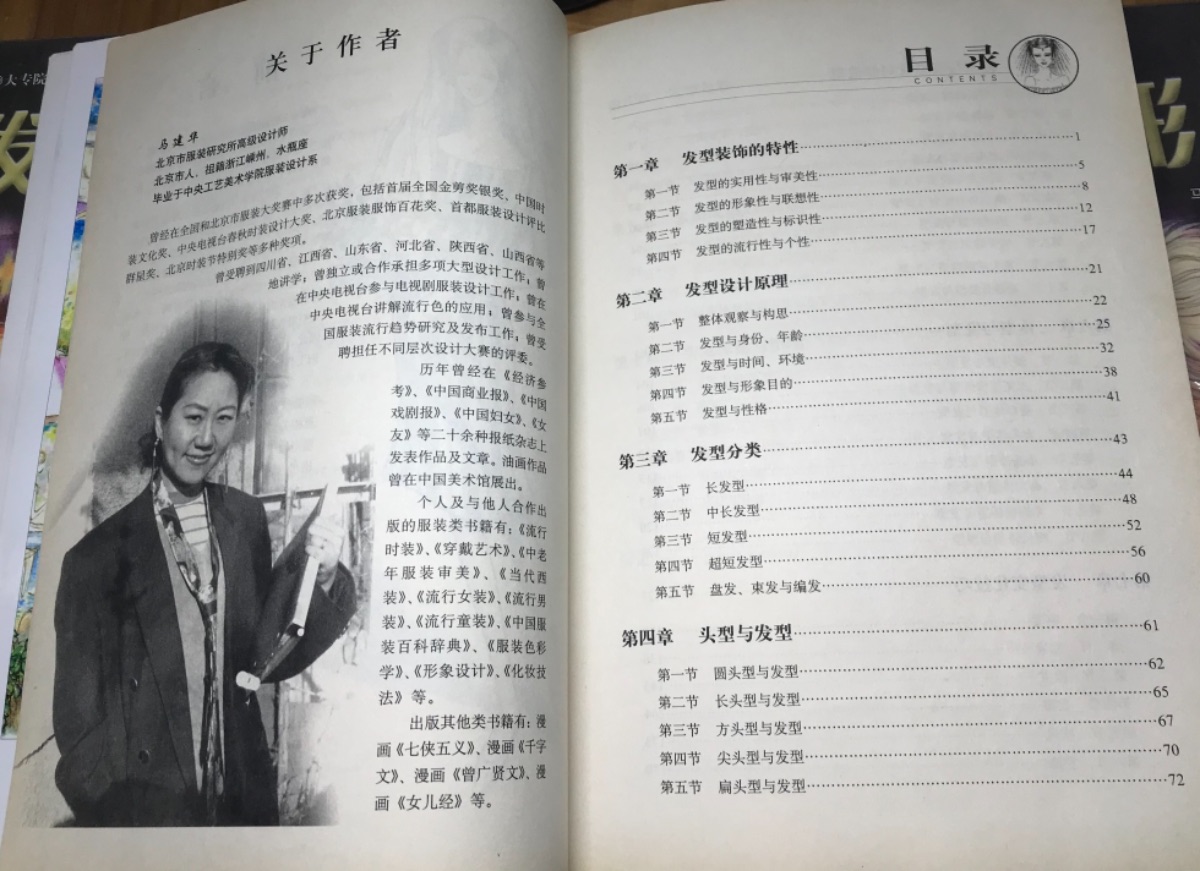 大专院
发
关于作者
马建华
北京市服装研究所高级设计师
北京市人，祖籍浙江嵊州，水瓶座
毕业于中央工艺美术学院服装设计系
曾经在全国和北京市服装大奖赛中多次获奖，包括首届全国金剪奖银奖、中国时
装文化奖、中央电视台春秋时装设计大奖、北京服装服饰百花奖、首都服装设计评比
群星奖、北京时装节特别奖等多种奖项。
曾受聘到四川省、江西省、山东省、河北省、陕西省、山西省等
地讲学；曾独立或合作承担多项大型设计工作；曾
在中央电视台参与电视剧服装设计工作；曾在
中央电视台讲解流行色的应用；曾参与全
国服装流行趋势研究及发布工作；曾受
聘担任不同层次设计大赛的评委。
历年曾经在《经济参
考》、《中国商业报》、《中国
戏剧报》、《中国妇女》、《女
友》等二十余种报纸杂志上
发表作品及文章。油画作品
曾在中国美术馆展出。
个人及与他人合作出
版的服装类书籍有：《流行
时装》、《穿戴艺术》、《中老
年服装审美》、《当代西
装》、《流行女装》、《流行男
装》、《流行童装》、《中国服
装百科辞典》、《服装色彩
学》、《形象设计》、《化妆技
法》等。
出版其他类书籍有：漫
画《七侠五义》、漫画《千字
文》、漫画《曾广贤文》、漫
画《女儿经》等。
目录
CONTENTS
第一章 发型装饰的特性 1
第一节 发型的实用性与审美性 5
第二节 发型的形象性与联想性 8
第三节 发型的塑造性与标识性 12
第四节 发型的流行性与个性 17
第二章 发型设计原理 21
第一节 整体观察与构思 22
第二节 发型与身份、年龄 25
第三节 发型与时间、环境 32
第四节 发型与形象目的 38
第五节 发型与性格 41
第三章 发型分类 43
第一节 长发型 44
第二节 中长发型 48
第三节 短发型 52
第四节 超短发型 56
第五节 盘发、束发与编发 60
第四章 头型与发型 61
第一节 圆头型与发型 62
第二节 长头型与发型 65
第三节 方头型与发型 67
第四节 尖头型与发型 70
第五节 扁头型与发型 72
马